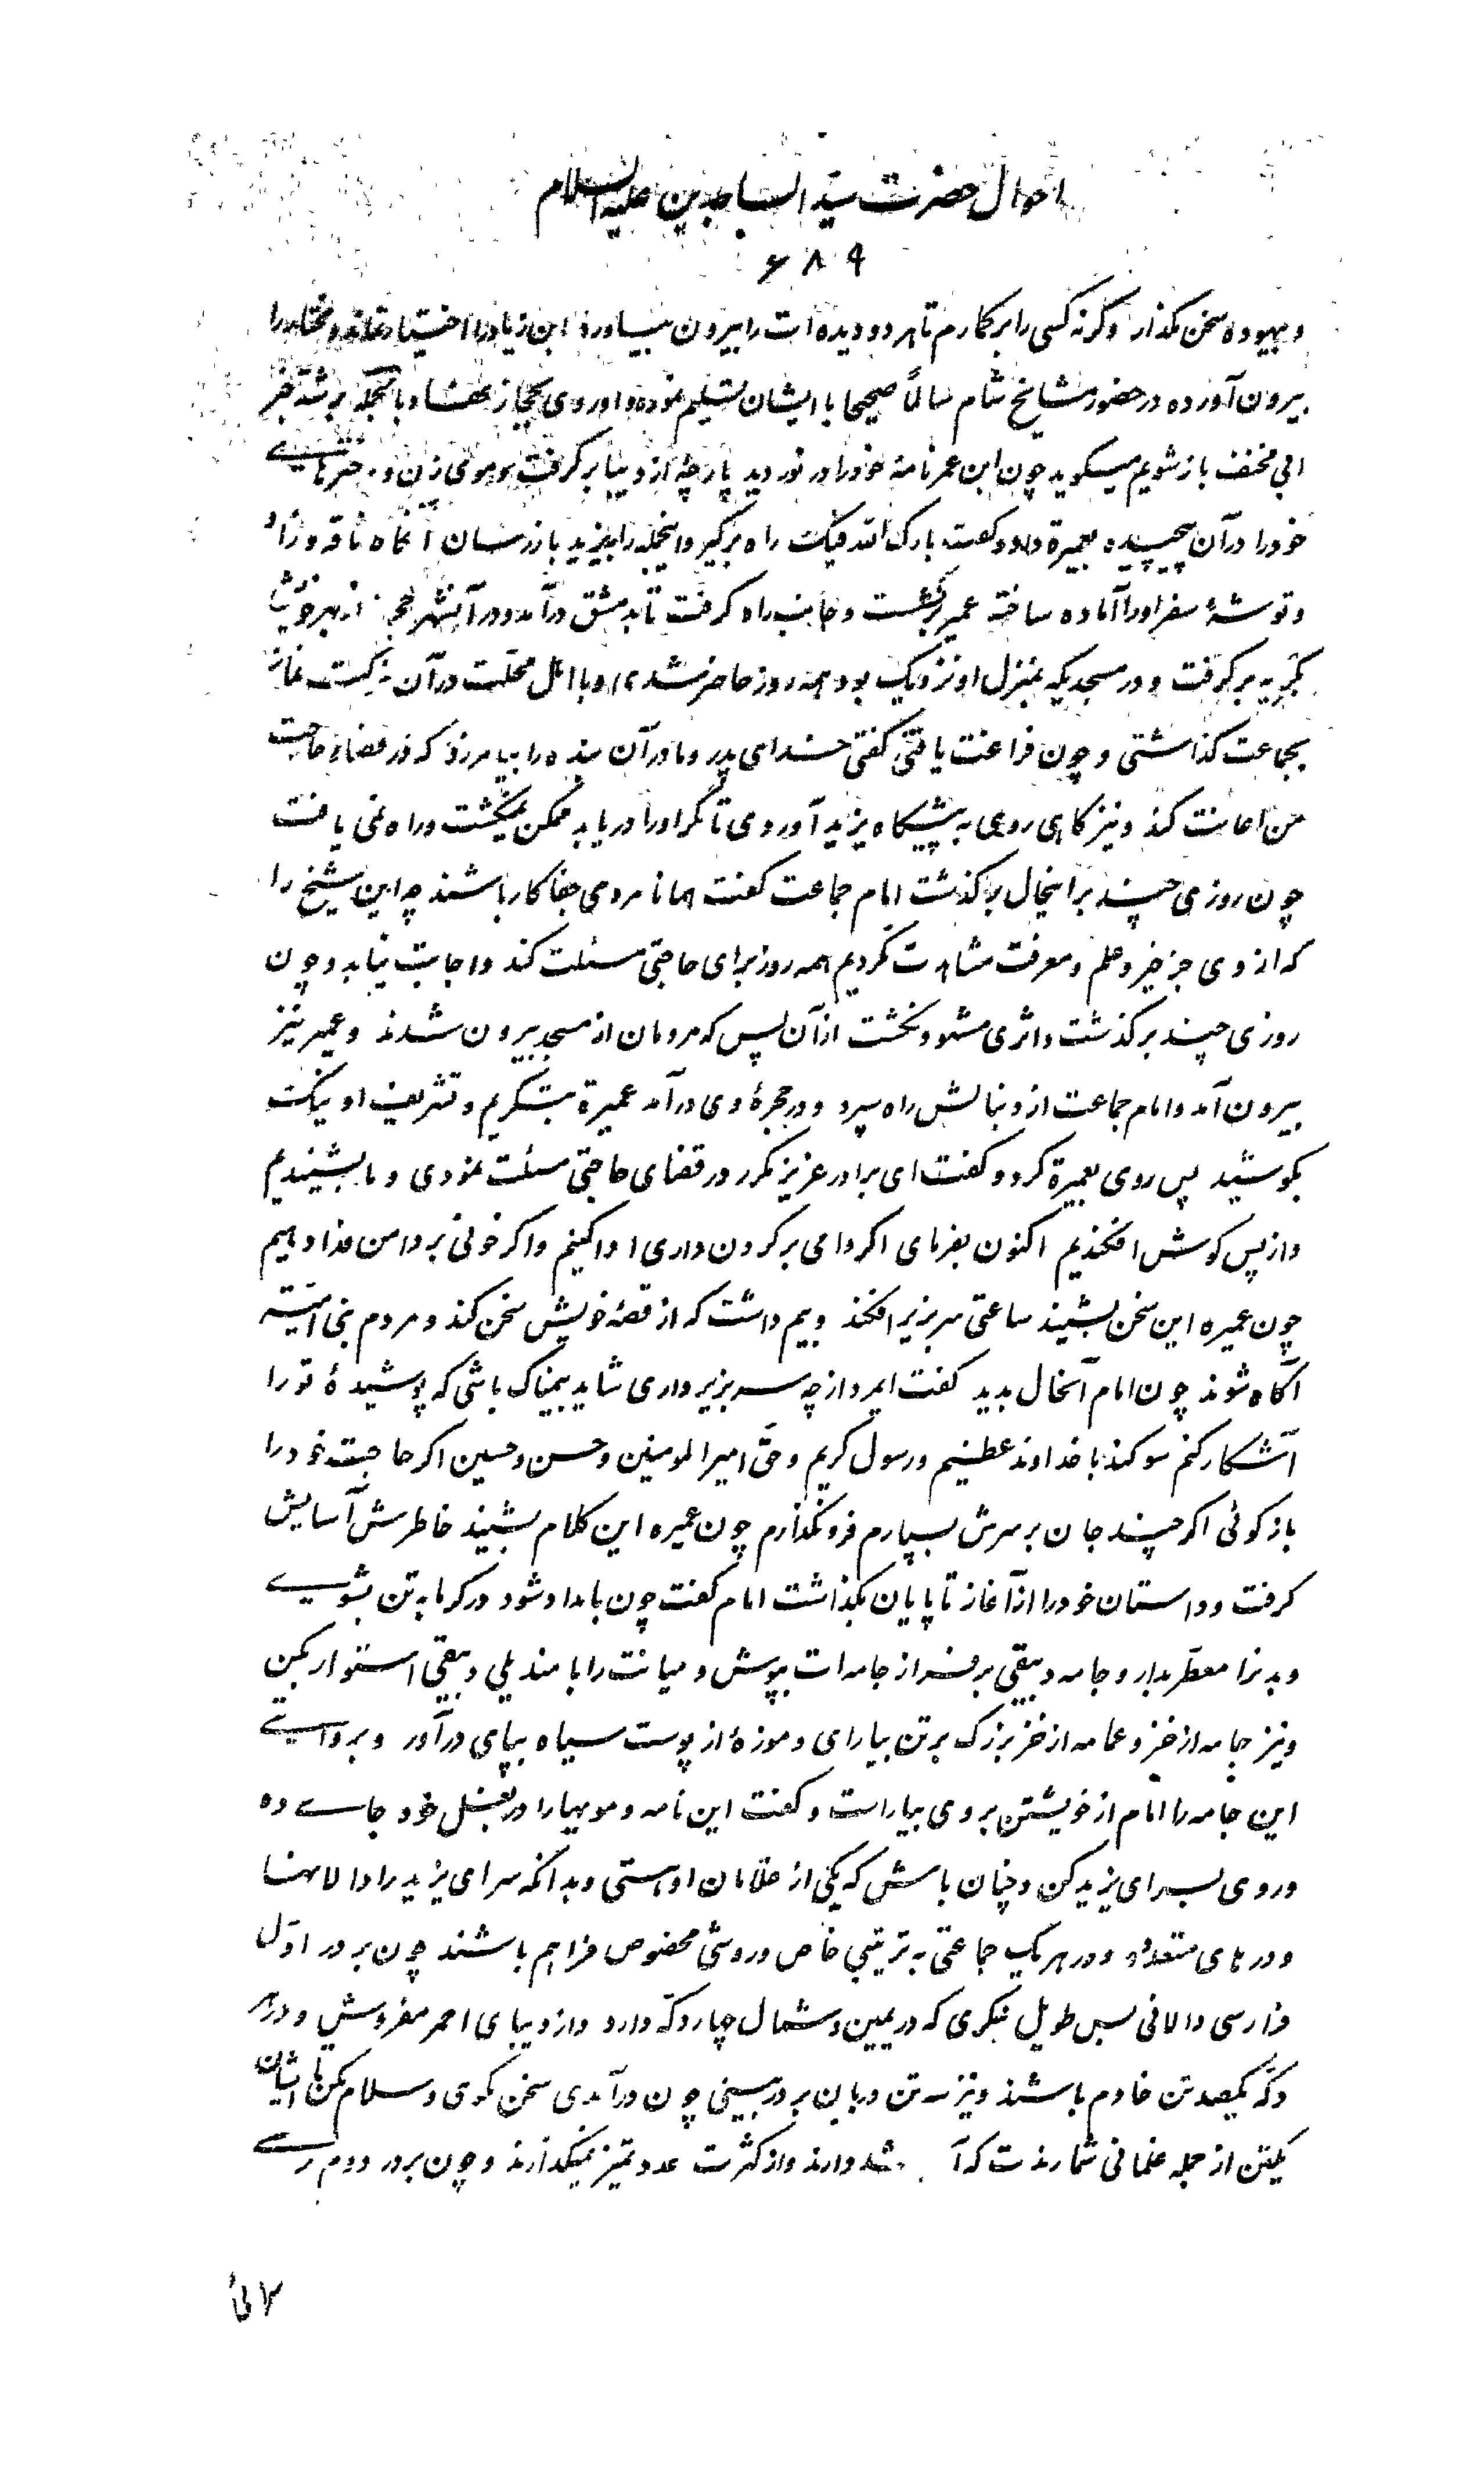 احوال حضرت سید الساجدین علیه السلام
۶۸۹
و بیهوده سخن مگذار وگرنه کسی را برگمارم تا هر دو دیده ات را بیرون بیاورد ابن زیاد را اختیار نماند و مختار را
بیرون آورده در حضور مشایخ شام سالماً صحیحا با ایشان تسلیم نموده و او روی بحجاز نهاد و بالجمله بر سر خبر
ابی مخنف باز شویم میگوید چون ابن عمر نامهٔ خود را در نوردید پارچهٔ از دیبا برگرفت و موی زن و دخترهای
خود را در آن پیچیده بعمیرة داد و گفت بارک الله فیک راه برگیر و اینجمله را بیزید باز رسان آنگاه ناقه و زاد
و توشهٔ سفر او را آماده ساخته عمیر برنشست و جانب راه گرفت تا بدمشق درآمد و در آنشهر حجرهٔ از بهر خویش
بکریه برگرفت و در مسجدیکه بمنزل او نزدیک بود همه روز حاضر شدی و با اهل محلت در آن مزکت نماز
بجماعت گذاشتی و چون فراغت یافتی گفتی خدای پدر و مادر آن بنده را بیامرزد که در قضاء حاجت
من اعانت کند و نیز گاهی روی به پیشگاه یزید آوردی تا مگر او را دریابد ممکن نمیگشت و راه نمی یافت
چون روزی چند بر اینحال برگذشت امام جماعت گفت همانا مردمی جفاکار باشند چه این شیخ را
که از وی جز خیر و علم و معرفت مشاهدت نکردیم همه روز برای حاجتی مسئلت کند و اجابت نیابد و چون
روزی چند برگذشت و اثری مشهود نگشت از آن پس که مردمان از مسجد بیرون شدند و عمیر نیز
بیرون آمد و امام جماعت از دنبالش راه سپرد و در حجرهٔ وی درآمد عمیرة بتکریم و تشریف او نیک
بکوشید پس روی بعمیرة کرد و گفت ای برادر عزیز مکرر در قضای حاجتی مسئلت نمودی و ما بشنیدیم
و از پس گوش افکندیم اکنون بفرمای اگر دامی بر گردن داری ادا کنیم و اگر خونی بر دامن فدا دهیم
چون عمیره این سخن بشنید ساعتی سر بزیر افکند و بیم داشت که از قصهٔ خویش سخن کند و مردم بنی امیه
آگاه شوند چون امام آنحال بدید گفت ایمرد از چه سر بزیر داری شاید بیمناک باشی که پوشیدهٔ تو را
آشکار کنم سوگند با خداوند عظیم و رسول کریم و حق امیر المومنین و حسن و حسین اگر حاجت خود را
باز گوئی اگر چند جان بر سرش بسپارم فرو نگذارم چون عمیره این کلام بشنید خاطرش آسایش
گرفت و داستان خود را از آغاز تا پایان بگذاشت امام گفت چون بامداد شود در گرمابه تن بشوی
و بدنرا معطر بدار و جامه دبیقی بر فراز جامه ات بپوش و میانت را با مندیلی دبیقی استوار بکن
و نیز جامه از خز و عمامه از خز بزرگ بر تن بیارای و موزهٔ از پوست سیاه بپای درآور و بروایتی
این جامه را امام از خویشتن بر وی بیاراست و گفت این نامه و مویها را در بغل خود جای ده
و روی بسرای یزید کن و چنان باش که یکی از غلامان او هستی و بدانکه سرای یزید را دالانها
و درهای متعدد و در هر یک جماعتی به ترتیبی خاص و روشی مخصوص فراهم باشند چون بر در اول
فرا رسی دالانی بس طویل بنگری که در یمین و شمال چهار دکه دارد و از دیبای احمر مفروش و در هر
دکه یکصد تن خادم باشند و نیز سه تن دربان بر در بینی چون درآمدی سخن مگوی و سلام مکن تا ایشان
یکتن از جمله غلمانی شمارندت که آمد شد دارند و از کثرت عدد تمیز نمیگذارند و چون بر در دوم رسی